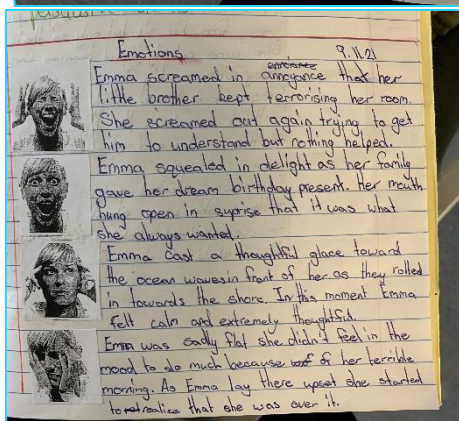 Emotions 9.11.21
annoyance
Emma screamed in annoyance that her
little brother kept terrorising her room.
She screamed out again trying to get
him to understand but nothing helped.
Emma squealed in delight as her family
gave her dream birthday present. Her mouth
hung open in suprise that it was what
she always wanted.
Emma cast a thoughtful glace toward
the ocean waves in front of her as they rolled
in towards the shore. In this moment Emma
felt calm and extremely thoughtful.
Emma was sadly flat she didn't feel in the
mood to do much because of her terrible
morning. As Emma lay there upset she started
to realise that she was over it.